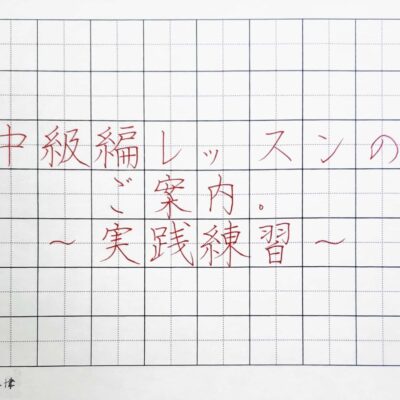 中級編レッスンの
ご案内。
～実践練習～
津